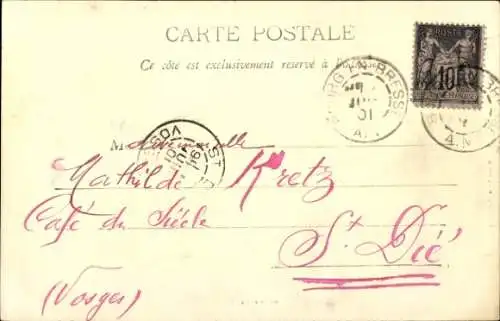 CARTE POSTALE
Ce côté est exclusivement réservé à l'adresse
POSTES
10
BOURG EN BRESSE
01
A.N
4.N
ST DIÉ
VOSGES
Mademoiselle
Mathilde Kretz
Café du Siècle
St Dié
(Vosges)